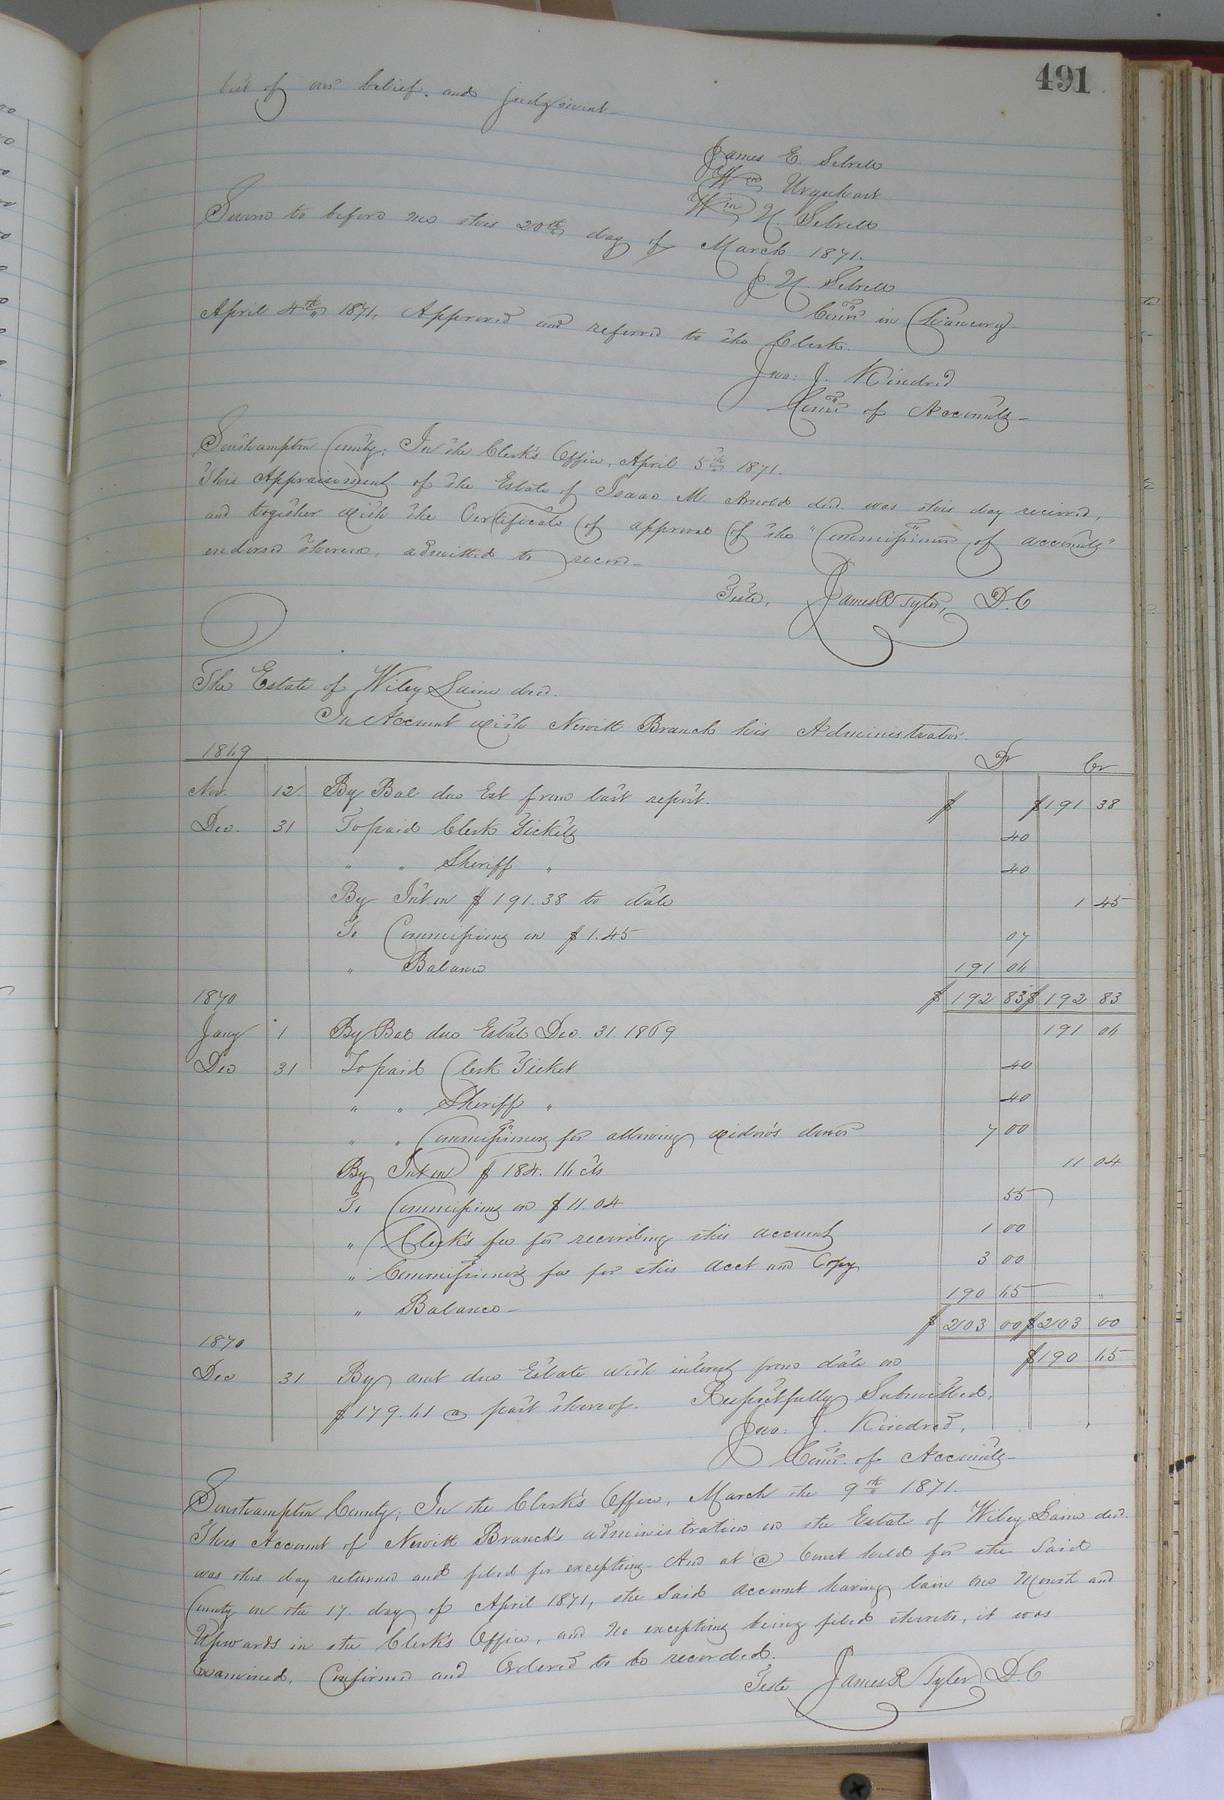 491
best of our belief and judgment
James E. Sebrell
Wm Urquhart
Wm N. Sebrell
Sworn to before me this 20th day of March 1871.
J. N. Sebrell
Comr in Chancery
April 4th 1871, Approved and referred to the Clerk.
Jno. J. Kindred
Comr of Accounts
Southampton County; In the Clerk's Office, April 5th 1871.
This Appraisement of the Estate of Isaac M. Arnold decd. was this day received,
and together with the Certificate of approval of the "Commissioner of accounts"
endorsed thereon, admitted to record
Teste, James R Tyler, D.C
The Estate of Wiley Laine decd.
In Account with Newitt Branch his Administrator.
1869 Dr Cr
Nov. 12 By Bal due Est from last report. $ $191 38
Dec. 31 To paid Clerk Tickets 40
" " Sheriff " 40
By Int on $191.38 to date 1 45
To Commissions on $1.45 07
" Balance 191 96
1870 $192 83 $192 83
Jany 1 By Bal due Estate Dec. 31. 1869 191 96
Dec 31 To paid Clerk Ticket 40
" " Sheriff " 40
" " Commissioners for allowing widow's dower 7 00
By Int on $184.16 cts 11 04
To Commissions on $11.04 55
" Clerk's fee for recording this account 1 00
" Commissioners fee for this acct and Copy 3 00
" Balance 190 65 "
$203 00 $203 00
1870 $190 65
Dec 31 By amt due Estate with interest from date on
$179.61 a part thereof. Respectfully Submitted,
Jno. J. Kindred,
Comr. of Accounts
Southampton County; In the Clerk's Office, March the 9th 1871.
This Account of Newitt Branch's administration on the Estate of Wiley Laine decd.
was this day returned and filed for exceptions And at a Court held for the Said
County on the 17. day of April 1871, the Said account having lain one Month and
Upwards in the Clerk's Office, and No exceptions being filed thereto, it was
Examined, Confirmed and Ordered to be recorded.
Teste James R Tyler D.C